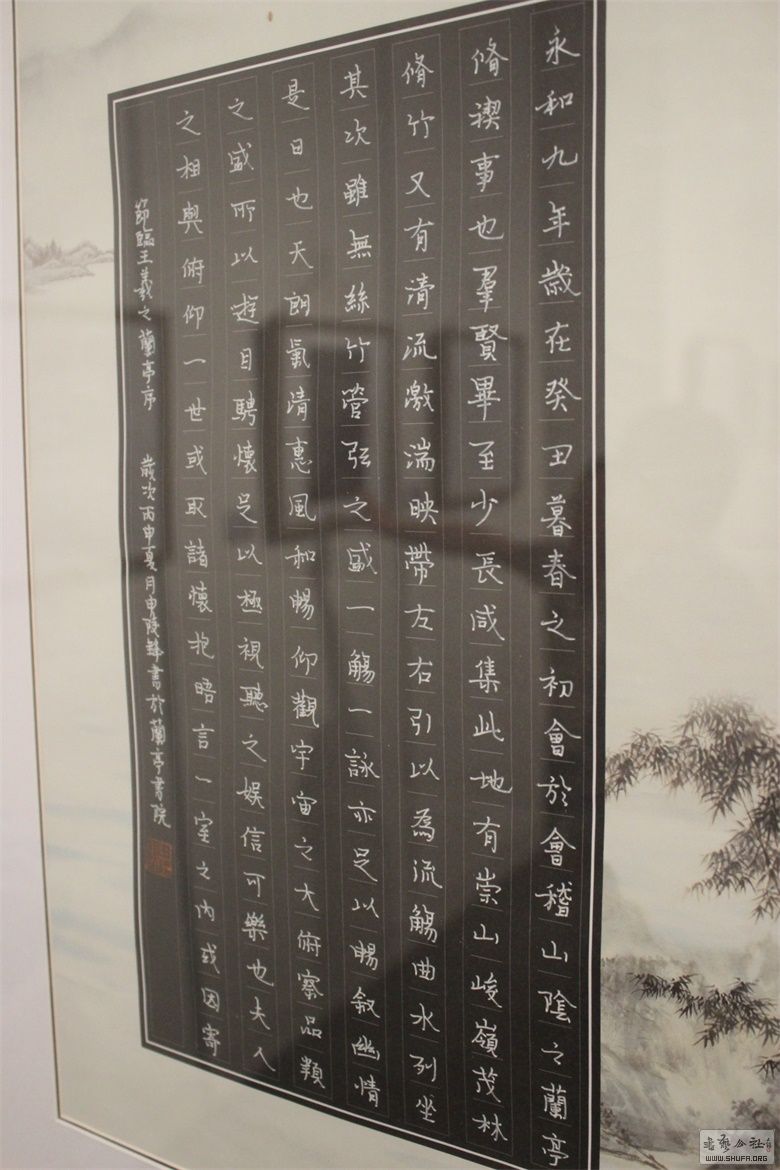 永和九年歲在癸丑暮春之初會於會稽山陰之蘭亭
脩禊事也羣賢畢至少長咸集此地有崇山峻嶺茂林
脩竹又有清流激湍映帶左右引以為流觴曲水列坐
其次雖無絲竹管弦之盛一觴一詠亦足以暢敘幽情
是日也天朗氣清惠風和暢仰觀宇宙之大俯察品類
之盛所以遊目騁懷足以極視聽之娛信可樂也夫人
之相與俯仰一世或取諸懷抱晤言一室之內或因寄
節臨王羲之蘭亭序 歲次丙申夏月申陵鋒書於蘭亭書院
WWW.SHUFA.ORG